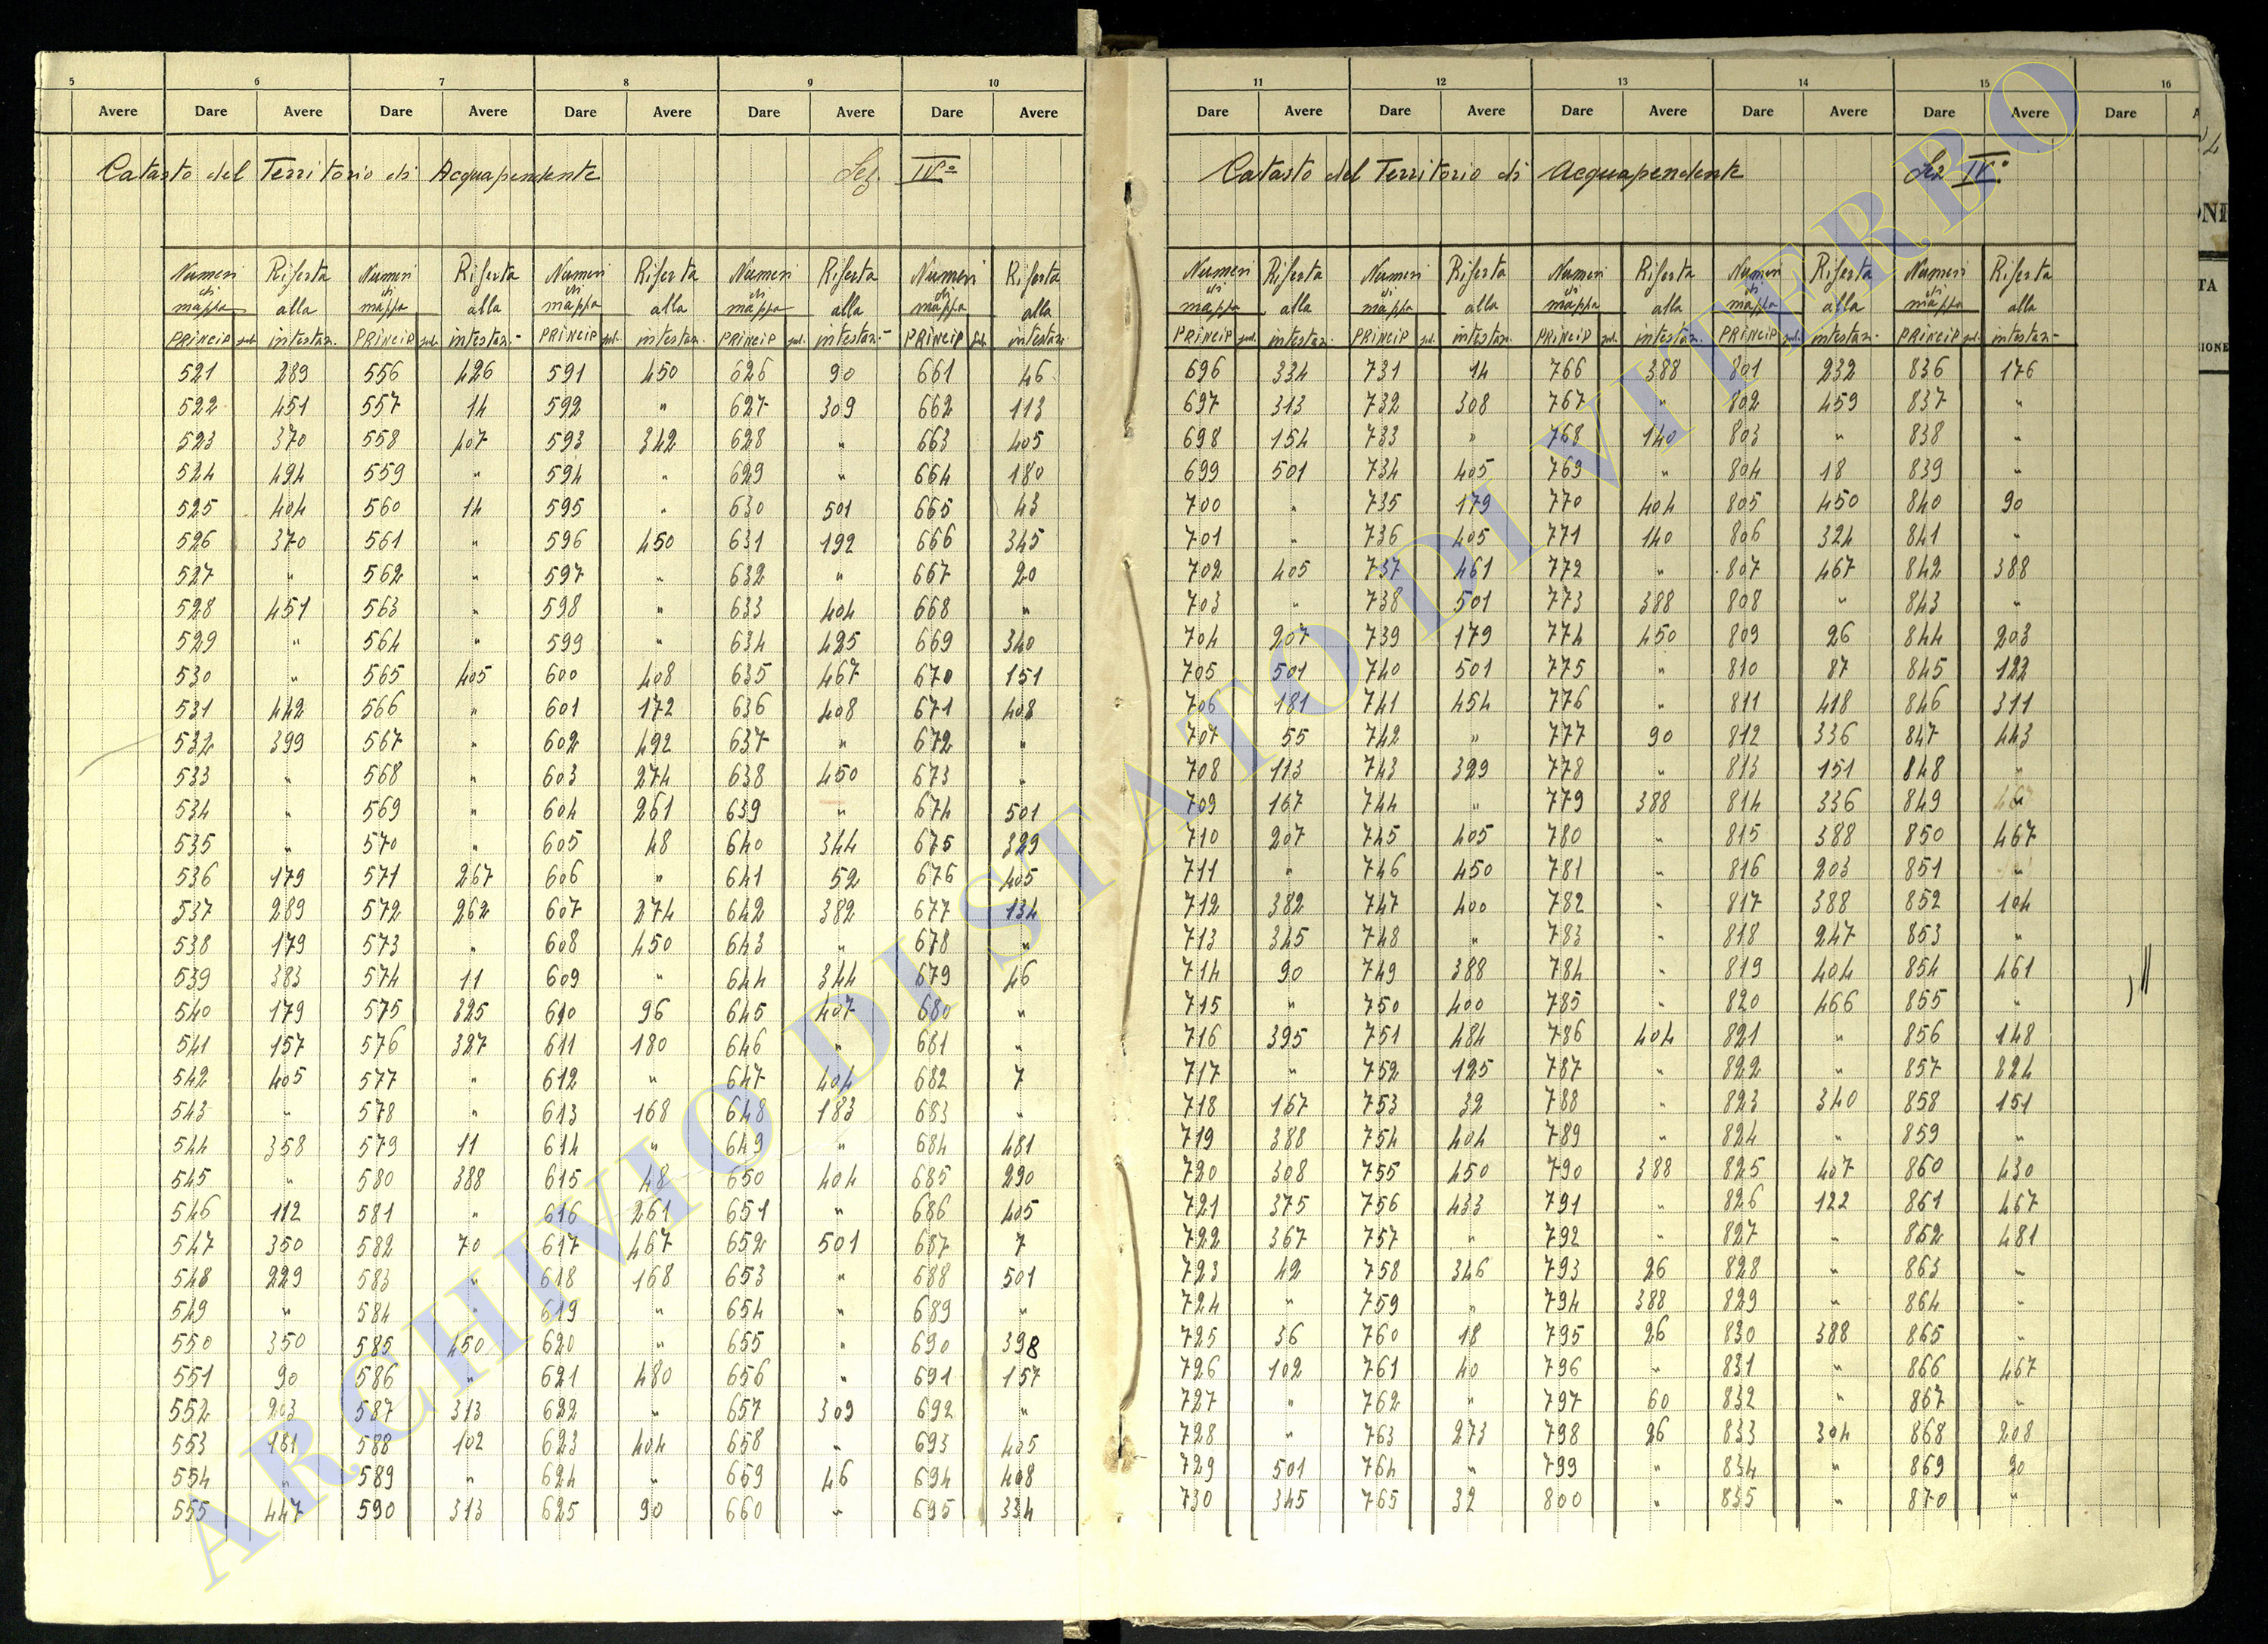 5 6 7 8 9 10
Avere Dare Avere Dare Avere Dare Avere Dare Avere Dare Avere
Catasto del Territorio di Acquapendente Sez IVª
Numeri Riferta Numeri Riferta Numeri Riferta Numeri Riferta Numeri Riferta
di di di di di
mappa alla mappa alla mappa alla mappa alla mappa alla
Princip sub. intestaz. Princip sub. intestaz. Princip sub. intestaz. Princip sub. intestaz. Princip sub. intestaz.
521 289 556 426 591 450 626 90 661 46
522 451 557 14 592 " 627 309 662 113
523 370 558 407 593 342 628 " 663 405
524 494 559 " 594 " 629 " 664 180
525 404 560 14 595 " 630 501 665 43
526 370 561 " 596 450 631 192 666 345
527 " 562 " 597 " 632 " 667 20
528 451 563 " 598 " 633 404 668 "
529 " 564 " 599 " 634 425 669 340
530 " 565 405 600 408 635 467 670 151
531 442 566 " 601 172 636 408 671 408
532 399 567 " 602 492 637 " 672 "
533 " 568 " 603 274 638 450 673 "
534 " 569 " 604 261 639 " 674 501
535 " 570 " 605 48 640 344 675 329
536 179 571 267 606 " 641 52 676 405
537 289 572 262 607 274 642 382 677 134
538 179 573 " 608 450 643 " 678 "
539 383 574 11 609 " 644 344 679 46
540 179 575 325 610 96 645 407 680 "
541 157 576 327 611 180 646 " 681 "
542 405 577 " 612 " 647 404 682 7
543 " 578 " 613 168 648 183 683 "
544 358 579 11 614 " 649 " 684 481
545 " 580 388 615 48 650 404 685 290
546 112 581 " 616 261 651 " 686 405
547 350 582 70 617 467 652 501 687 7
548 229 583 " 618 168 653 " 688 501
549 " 584 " 619 " 654 " 689 "
550 350 585 450 620 " 655 " 690 398
551 90 586 " 621 480 656 " 691 157
552 203 587 313 622 " 657 309 692 "
553 181 588 102 623 404 658 " 693 405
554 " 589 " 624 " 659 46 694 408
555 447 590 313 625 90 660 " 695 334
11 12 13 14 15 16
Dare Avere Dare Avere Dare Avere Dare Avere Dare Avere Dare
Catasto del Territorio di Acquapendente Sez IVª
Numeri Riferta Numeri Riferta Numeri Riferta Numeri Riferta Numeri Riferta
di di di di di
mappa alla mappa alla mappa alla mappa alla mappa alla
Princip sub. intestaz. Princip sub. intestaz. Princip sub. intestaz. Princip sub. intestaz. Princip sub. intestaz.
696 334 731 14 766 388 801 232 836 176
697 313 732 308 767 " 802 459 837 "
698 154 733 " 768 140 803 " 838 "
699 501 734 405 769 " 804 18 839 "
700 " 735 179 770 404 805 450 840 90
701 " 736 405 771 140 806 324 841 "
702 405 737 461 772 " 807 467 842 388
703 " 738 501 773 388 808 " 843 "
704 207 739 179 774 450 809 26 844 203
705 501 740 501 775 " 810 87 845 122
706 181 741 454 776 " 811 418 846 311
707 55 742 " 777 90 812 336 847 443
708 113 743 329 778 " 813 151 848 "
709 167 744 " 779 388 814 336 849 "
710 207 745 405 780 " 815 388 850 467
711 " 746 450 781 " 816 203 851 "
712 382 747 400 782 " 817 388 852 104
713 345 748 " 783 " 818 247 853 "
714 90 749 388 784 " 819 404 854 461
715 " 750 400 785 " 820 466 855 "
716 395 751 484 786 404 821 " 856 148
717 " 752 125 787 " 822 " 857 224
718 167 753 32 788 " 823 340 858 151
719 388 754 404 789 " 824 " 859 "
720 308 755 450 790 388 825 407 860 430
721 375 756 433 791 " 826 122 861 467
722 367 757 " 792 " 827 " 862 481
723 42 758 346 793 26 828 " 863 "
724 " 759 " 794 388 829 " 864 "
725 36 760 18 795 26 830 388 865 "
726 102 761 40 796 " 831 " 866 467
727 " 762 " 797 60 832 " 867 "
728 " 763 273 798 26 833 304 868 208
729 501 764 " 799 " 834 " 869 90
730 345 765 32 800 " 835 " 870 "
ARCHIVIO DI STATO DI VITERBO